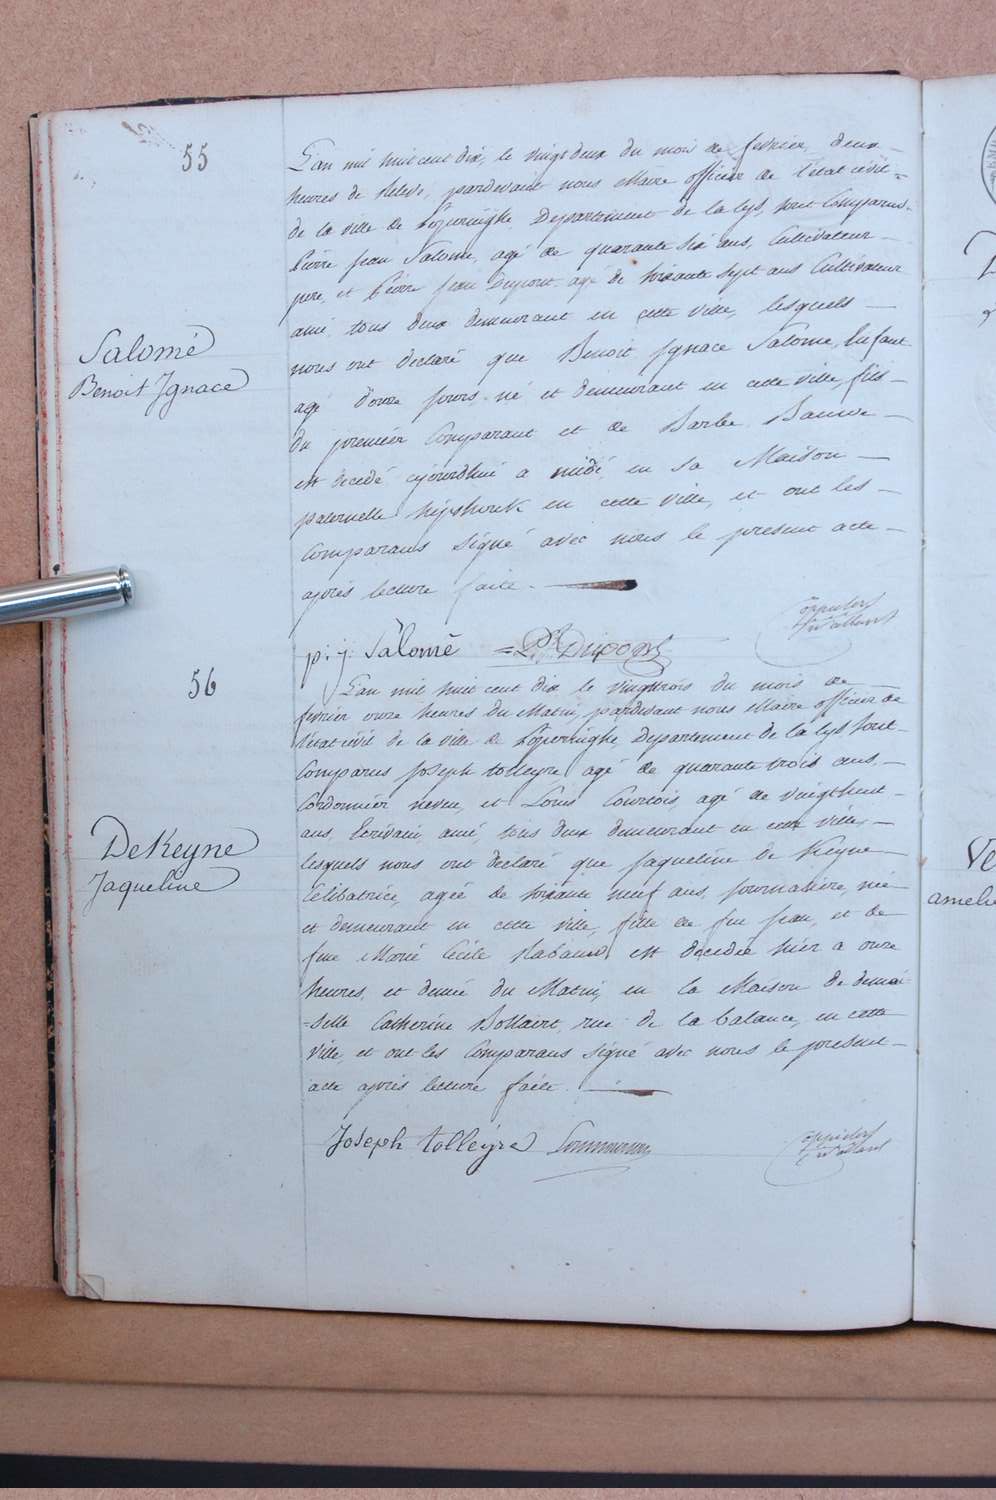 55
L'an mil huit cent dix, le vingt deux du mois de fevrier, deux
heures de relevé, pardevant nous Maire officier de l'etat civil =
de la ville de Poperinghe, Departement de la Lys, sont Comparus
Pierre jean Salomé, agé de quarante six ans, Cultivateur
pere, et Pierre jean Dupont agé de soixante sept ans Cultivateur
ami, tous deux demeurant en cette ville, lesquels
nous ont declaré que Benoit Ignace Salome, Enfant
agé d'onze jours né et demeurant en cette ville, fils
du premier Comparant et de Barbe
est decedé ajourdhui a midi, en sa Maison
paternelle en cette ville, et ont les
Comparans signé avec nous le present acte
après lecture faite.
Salomé
Benoit Ignace
p: j: Salomé = Dupont
56
L'an mil huit cent dix le vingttrois du mois de
fevrier onze heures du Matin, pardevant nous Maire officier de
l'etat civil de la ville de Poperinghe, Departement de la Lys sont
Comparus Joseph tolleyre agé de quarante trois ans,
Cordonnier neveu, et Louis Courtois, agé de vingthuit
ans, Ecrivain, ami, tous deux demeurant en cette ville,
lesquels nous ont declaré que Jaqueline de Keyne
Celibatrice, agée de soixante neuf ans, journaliere, née
et demeurant en cette ville, fille de feu jean, et de
feue Marie Cécile est decedée hier a onze
heures, et demie du Matin, en la Maison de demoi
=selle Catherine Bollaert, rue de la balance, en cette
ville, et ont les Comparans signé avec nous le present
acte après lecture faite.
DeKeyne
Jaqueline
Joseph tolleyre
Ve
amelie